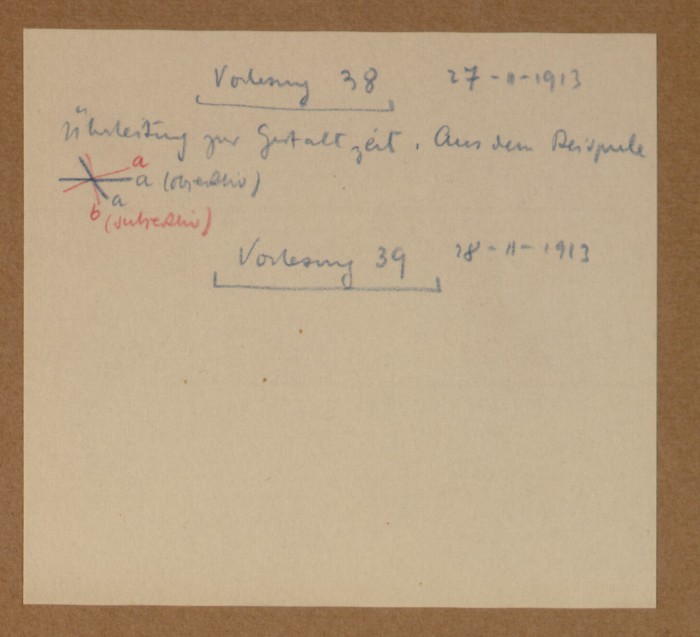 Vorlesung 38 27-II-1913
Überleitung zur Gestaltzeit. Aus dem Beispiele
a
a (objektiv)
a
b (subjektiv)
Vorlesung 39 28-II-1913